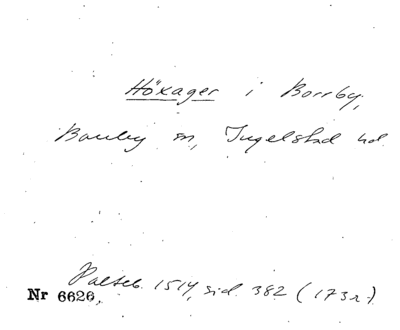 Höxager i Borrby,
Borrby sn, Ingelstad hd.
Palteb. 1514, sid. 382 (173r.)
Nr 6626,